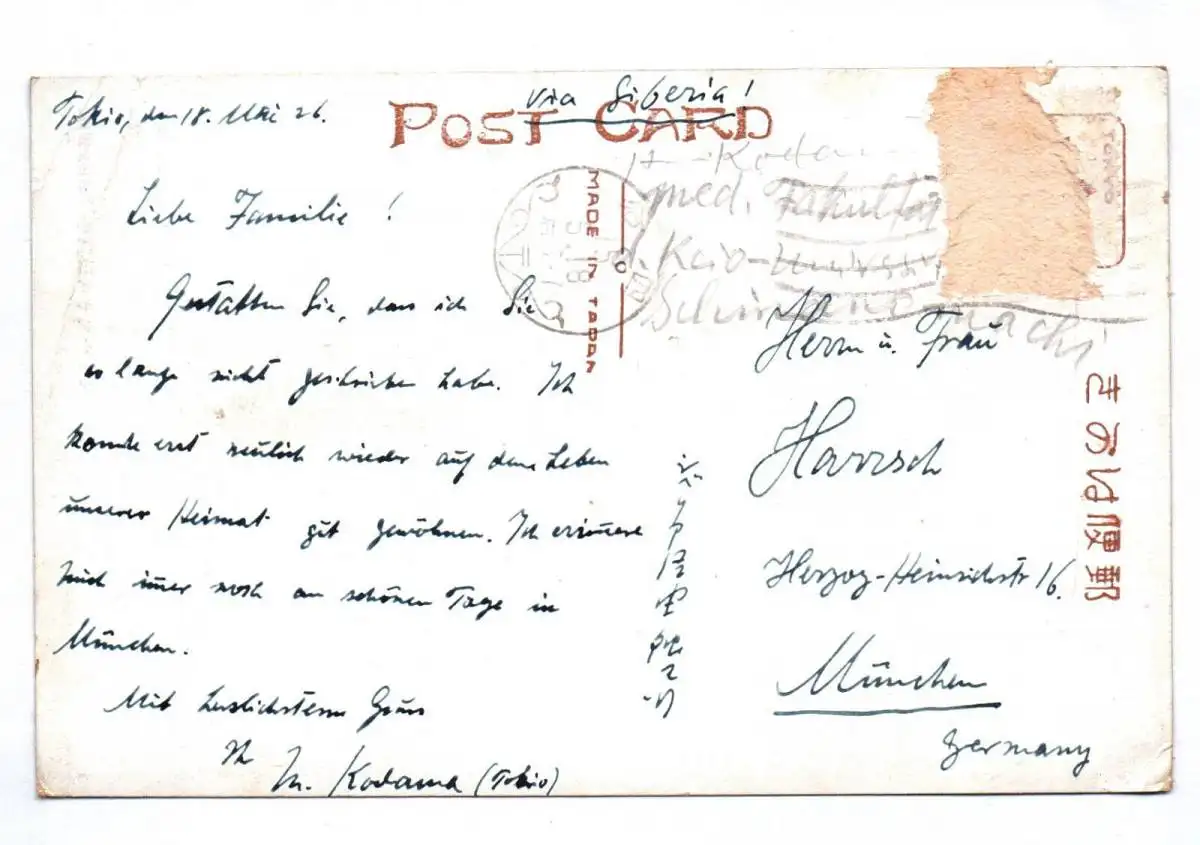 Tokio, den 18. Mai 26.
via Siberia!
POST CARD
MADE IN
Liebe Familie!
Gestatten Sie, dass ich Sie
so lange nicht geschrieben habe. Ich
konnte erst neulich wieder auf dem Leben
unserer Heimat gut gewöhnen. Ich erinnere
mich immer noch an schönen Tage in
München.
Mit herzlichstem Gruss
Ihr
Kodama (Tokio)
Kodama
med. Fakultät
d. Keio-
machi
Herrn u. Frau
Harrsch
Herzog-Heinrichstr 16.
München
Germany
きがは便郵